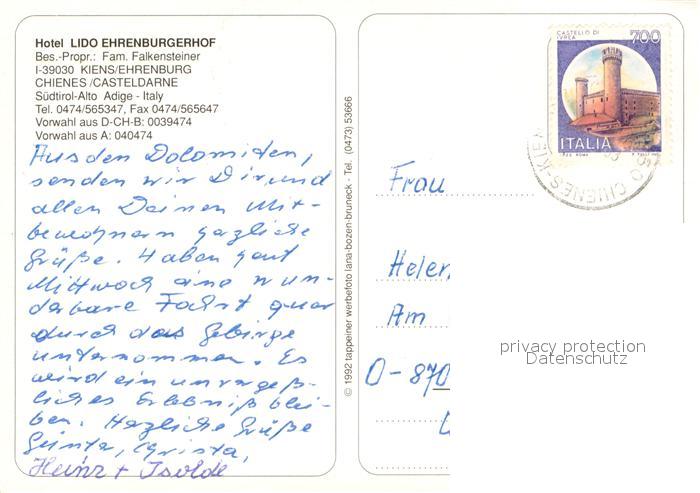 Hotel LIDO EHRENBURGERHOF
Bes.-Propr.: Fam. Falkensteiner
I-39030 KIENS/EHRENBURG
CHIENES /CASTELDARNE
Südtirol-Alto Adige - Italy
Tel. 0474/565347, Fax 0474/565647
Vorwahl aus D-CH-B: 0039474
Vorwahl aus A: 040474
Aus den Dolomiten,
senden wir Dir und
allen Deinen Mit-
bewohnern herzliche
Grüße. Haben heut
Mittwoch eine wun-
derbare Fahrt quer
durch das Gebirge
unternommen. Es
wird ein unvergeß-
liches Erlebniß blei-
ben. Herzliche Grüße
Christa,
Heinz + Isolde
© 1992 tappeiner werbefoto lana-bozen-bruneck · Tel. (0473) 53666
CASTELLO DI
IVREA
700
ITALIA
CHIENES-KIENS
Frau
Helen
Am
O-870
privacy protection
Datenschutz